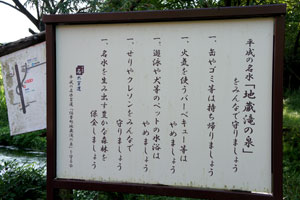 平成の名水「地蔵滝の泉」
をみんなで守りましょう
一、缶やゴミ等は持ち帰りましょう
一、火気を使うバーベキュー等は
やめましょう
一、游泳や犬等のペットの水浴は
やめましょう
一、せりやクレソンをみんなで
守りましょう
一、名水を生み出す豊かな森林を
保全しましょう